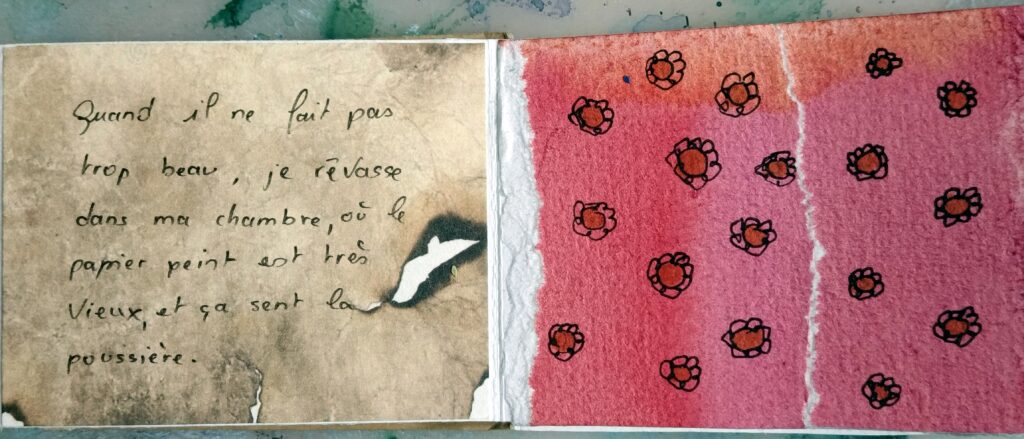 Quand il ne fait pas
trop beau, je rêvasse
dans ma chambre, où le
papier peint est très
vieux, et ça sent la
poussière.